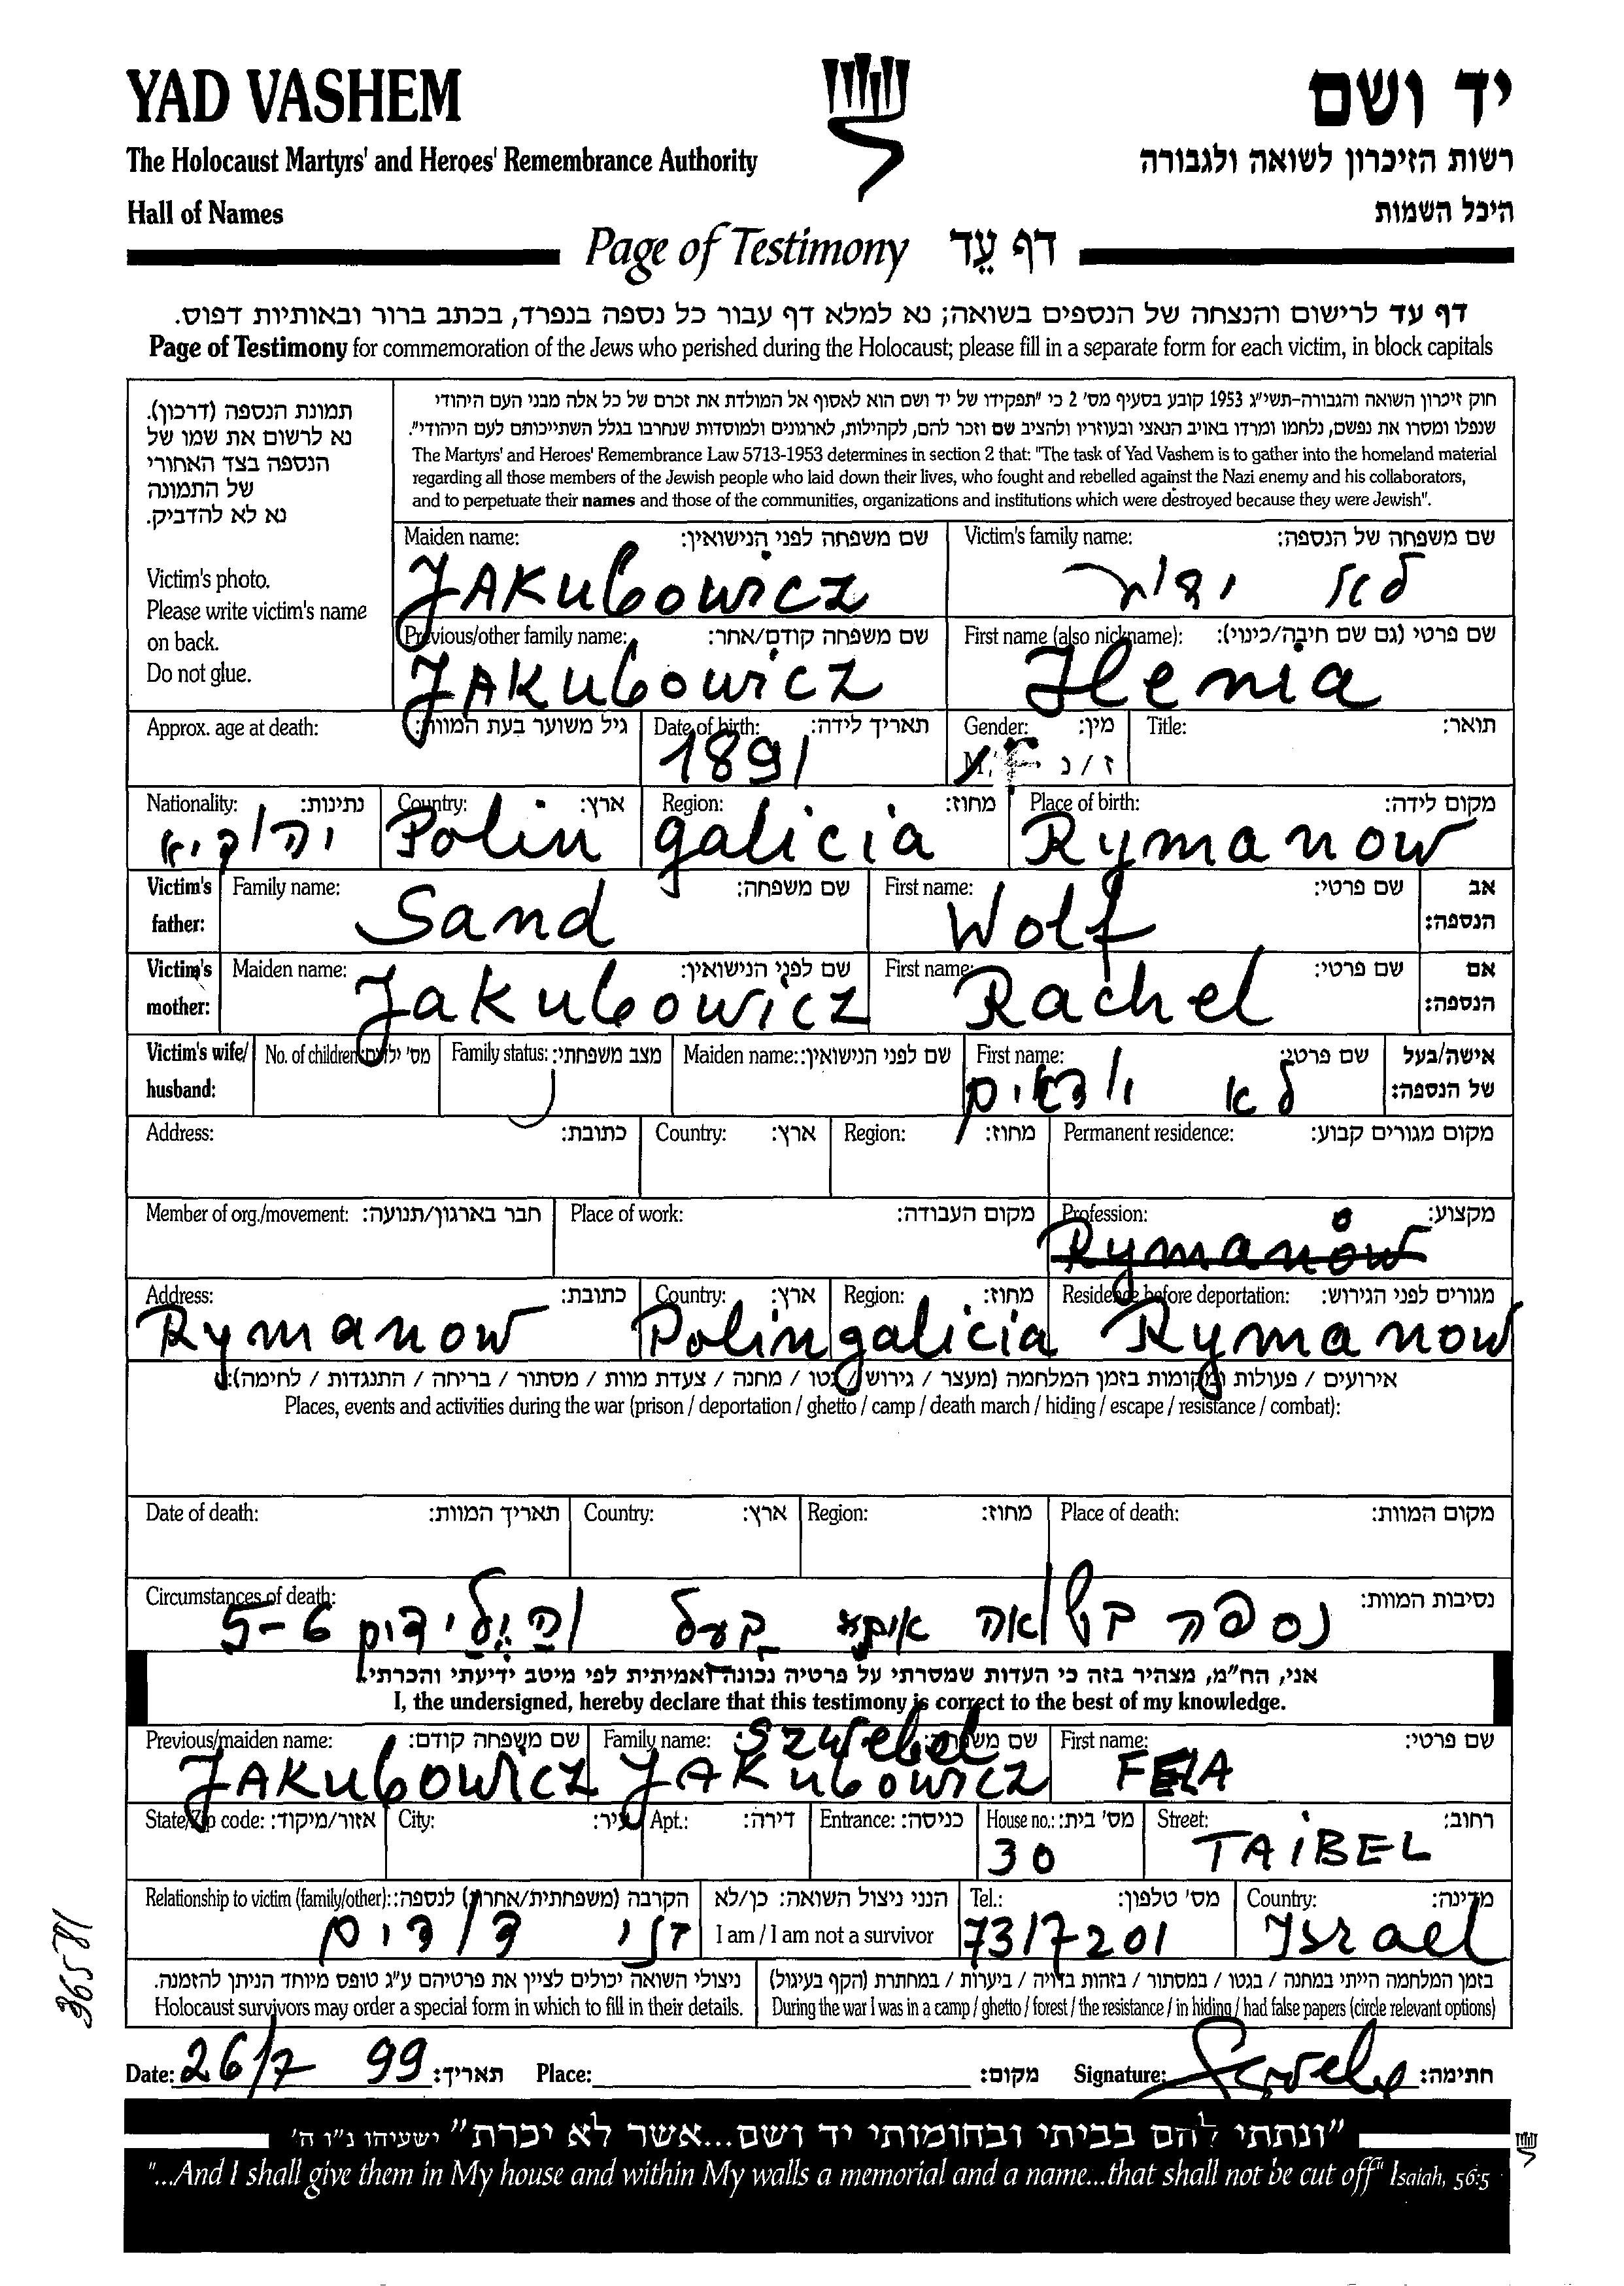 YAD VASHEM
יד ושם
The Holocaust Martyrs' and Heroes' Remembrance Authority
רשות הזיכרון לשואה ולגבורה
Hall of Names
היכל השמות
Page of Testimony דף עֵד
דף עד לרישום והנצחה של הנספים בשואה; נא למלא דף עבור כל נספה בנפרד, בכתב ברור ובאותיות דפוס.
Page of Testimony for commemoration of the Jews who perished during the Holocaust; please fill in a separate form for each victim, in block capitals
תמונת הנספה (דרכון).
נא לרשום את שמו של
הנספה בצד האחורי
של התמונה
נא לא להדביק.
Victim's photo.
Please write victim's name
on back.
Do not glue.
חוק זיכרון השואה והגבורה-תשי"ג 1953 קובע בסעיף מס' 2 כי "תפקידו של יד ושם הוא לאסוף אל המולדת את זכרם של כל אלה מבני העם היהודי
שנפלו ומסרו את נפשם, נלחמו ומרדו באויב הנאצי ובעוזריו ולהציב שם וזכר להם, לקהילות, לארגונים ולמוסדות שנחרבו בגלל השתייכותם לעם היהודי".
The Martyrs' and Heroes' Remembrance Law 5713-1953 determines in section 2 that: "The task of Yad Vashem is to gather into the homeland material
regarding all those members of the Jewish people who laid down their lives, who fought and rebelled against the Nazi enemy and his collaborators,
and to perpetuate their names and those of the communities, organizations and institutions which were destroyed because they were Jewish".
Maiden name: שם משפחה לפני הנישואין: Victim's family name: שם משפחה של הנספה:
JAKubowicz לא ידוע
Previous/other family name: שם משפחה קודם/אחר: First name (also nickname): שם פרטי (גם שם חיבה/כינוי):
JAKubowicz Henia
Approx. age at death: גיל משוער בעת המוות: Date of birth: תאריך לידה: Gender: מין: Title: תואר:
1891 F ז / נ
Nationality: נתינות: Country: ארץ: Region: מחוז: Place of birth: מקום לידה:
יהודיא Polin galicia Rymanow
Victim's father: Family name: שם משפחה: First name: שם פרטי: אב הנספה:
Sand Wolf
Victim's mother: Maiden name: שם לפני הנישואין: First name: שם פרטי: אם הנספה:
Jakubowicz Rachel
Victim's wife/ husband: No. of children: מס' ילדים: Family status: מצב משפחתי: Maiden name: שם לפני הנישואין: First name: שם פרטי: אישה/בעל של הנספה:
לא
Address: כתובת: Country: ארץ: Region: מחוז: Permanent residence: מקום מגורים קבוע:
Member of org./movement: חבר בארגון/תנועה: Place of work: מקום העבודה: Profession: מקצוע:
Rymanow
Address: כתובת: Country: ארץ: Region: מחוז: Residence before deportation: מגורים לפני הגירוש:
Rymanow Polin galicia Rymanow
אירועים / פעולות ומקומות בזמן המלחמה (מעצר / גירוש / גטו / מחנה / צעדת מוות / מסתור / בריחה / התנגדות / לחימה):
Places, events and activities during the war (prison / deportation / ghetto / camp / death march / hiding / escape / resistance / combat):
Date of death: תאריך המוות: Country: ארץ: Region: מחוז: Place of death: מקום המוות:
Circumstances of death: נסיבות המוות:
נספה בשואה בעל והילידים 5-6
אני, הח"מ, מצהיר בזה כי העדות שמסרתי על פרטיה נכונה ואמיתית לפי מיטב ידיעתי והכרתי.
I, the undersigned, hereby declare that this testimony is correct to the best of my knowledge.
Previous/maiden name: שם משפחה קודם: Family name: שם משפחה: First name: שם פרטי:
Szwebel
JAKubowicz JAKubowicz FELA
State/Zip code: אזור/מיקוד: City: עיר: Apt.: דירה: Entrance: כניסה: House no.: מס' בית: Street: רחוב:
30 TAiBEL
Relationship to victim (family/other): הקרבה (משפחתית/אחרת) לנספה: הנני ניצול השואה: כן/לא Tel.: מס' טלפון: Country: מדינה:
I am / I am not a survivor
דודים 7317201 Israel
ניצולי השואה יכולים לציין את פרטיהם ע"ג טופס מיוחד הניתן להזמנה.
Holocaust survivors may order a special form in which to fill in their details.
בזמן המלחמה הייתי במחנה / בגטו / במסתור / בזהות בדויה / ביערות / במחתרת (הקף בעיגול)
During the war I was in a camp / ghetto / forest / the resistance / in hiding / had false papers (circle relevant options)
Date: 26/7 99 תאריך: Place: מקום: Signature: חתימה:
"ונתתי להם בביתי ובחומותי יד ושם...אשר לא יכרת" ישעיהו נ"ו ה'
"...And I shall give them in My house and within My walls a memorial and a name...that shall not be cut off" Isaiah, 56:5